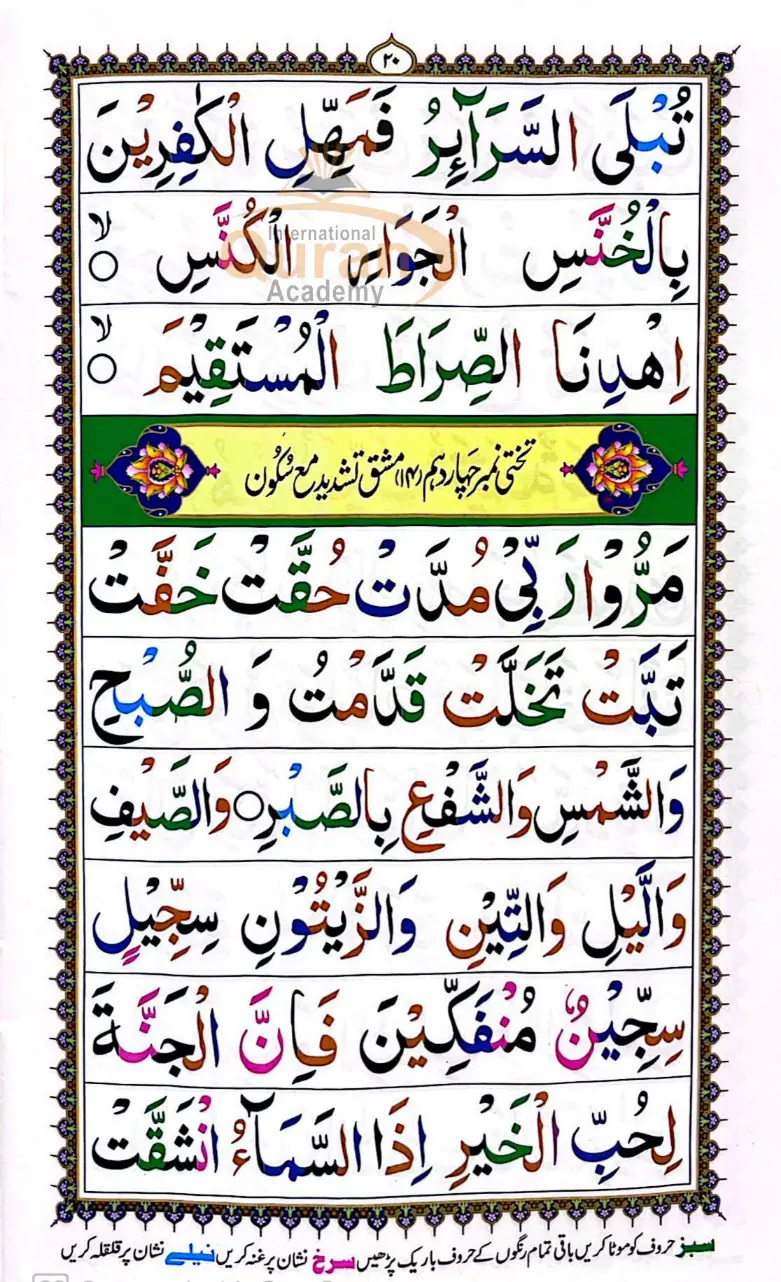 ٢٠
تُبْلَى السَّرَآئِرُ فَمَهِّلِ الْكٰفِرِيْنَ
بِالْخُنَّسِ الْجَوَارِ الْكُنَّسِ ۙ○
International
Quran
Academy
اِهْدِنَا الصِّرَاطَ الْمُسْتَقِيْمَ ۙ○
تختی نمبر چہاردہم (۱۴) مشق تشدید مع سُکُون
مَرُّوْا رَبِّيْ مُدَّتْ حُقَّتْ خَفَّتْ
تَبَّتْ تَخَلَّتْ قَدَّمْتُ وَ الصُّبْحِ
وَالشَّمْسِ وَالشَّفْعِ بِالصَّبْرِ○ وَالصَّيْفِ
وَالَّيْلِ وَالتِّيْنِ وَالزَّيْتُوْنِ سِجِّيْلٍ
سِجِّيْنٌ مُنْفَكِّيْنَ فَاِنَّ الْجَنَّةَ
لِحُبِّ الْخَيْرِ اِذَا السَّمَآءُ انْشَقَّتْ
سبز حروف کو موٹا کریں باقی تمام رنگوں کے حروف باریک پڑھیں سرخ نشان پر غنہ کریں نیلے نشان پر قلقلہ کریں